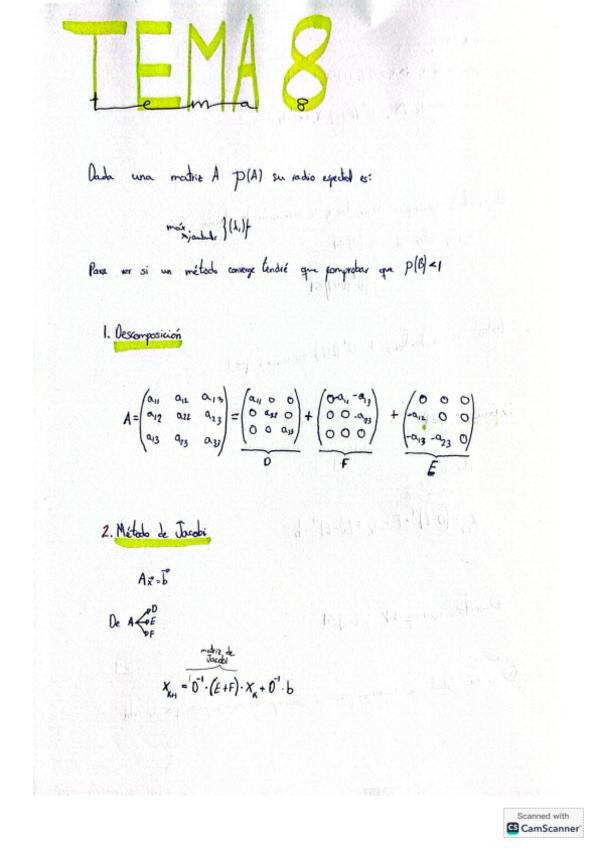 TEMA 8
tema 8
Dada una matriz A ρ(A) su radio espectral es:
máx {|λi|}
Para ver si un método converge tendré que comprobar que ρ(B)<1
1. Descomposición
A = (a11 a12 a13 = (a11 0 0 + (0 -a12 -a13 + (0 0 0
a12 a22 a23 0 a22 0 0 0 -a23 -a12 0 0
a13 a23 a33) 0 0 a33) 0 0 0) -a13 -a23 0)
D F E
2. Método de Jacobi
Ax⃗=b⃗
D
De A E
F
matriz de
Jacobi
x_{k+1} = D⁻¹·(E+F)·x_k + D⁻¹·b
Scanned with
CS CamScanner